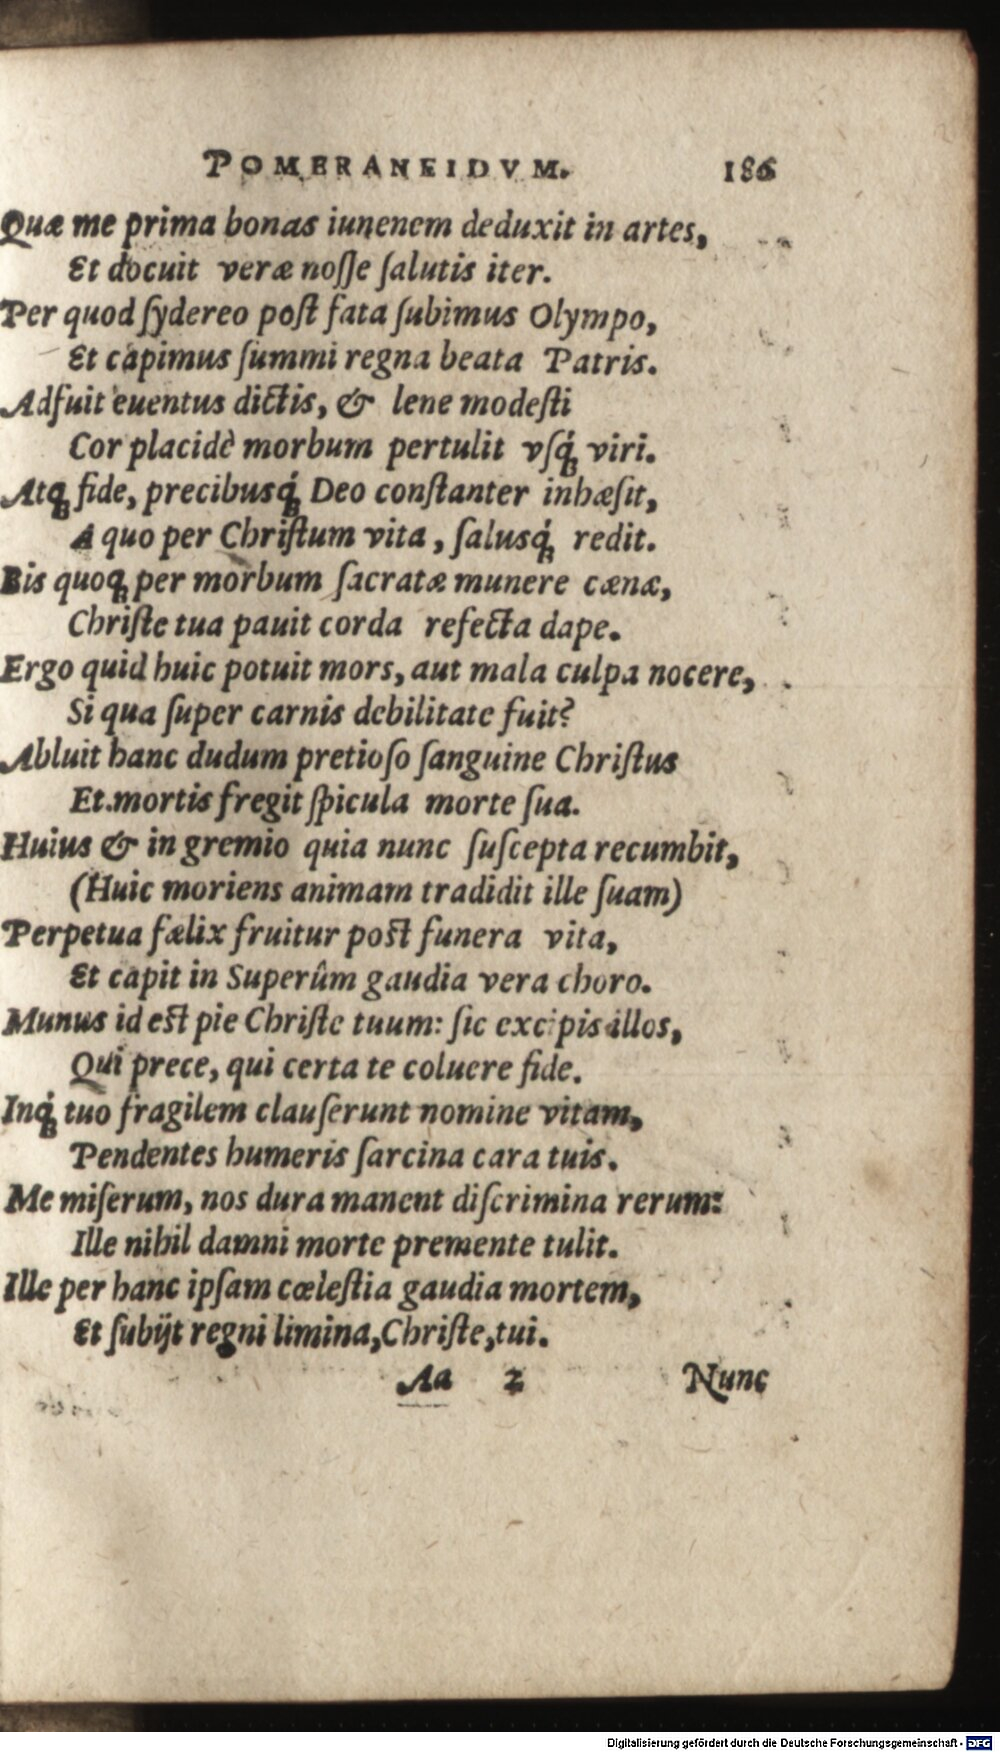 POMERANEIDVM. 186
Quæ me prima bonas iunenem deduxit in artes,
Et docuit veræ noſſe ſalutis iter.
Per quod ſydereo poſt fata ſubimus Olympo,
Et capimus ſummi regna beata Patris.
Adfuit euentus dictis, & lene modeſti
Cor placidè morbum pertulit vſq́ꝫ viri.
Atqꝫ fide, precibusq́ꝫ Deo conſtanter inhæſit,
A quo per Chriſtum vita, ſalusq́ꝫ redit.
Bis quoqꝫ per morbum ſacratæ munere cænæ,
Chriſte tua pauit corda refecta dape.
Ergo quid huic potuit mors, aut mala culpa nocere,
Si qua ſuper carnis debilitate fuit?
Abluit hanc dudum pretioſo ſanguine Chriſtus
Et mortis fregit ſpicula morte ſua.
Huius & in gremio quia nunc ſuſcepta recumbit,
(Huic moriens animam tradidit ille ſuam)
Perpetua fælix fruitur poſt funera vita,
Et capit in Superûm gaudia vera choro.
Munus id eſt pie Chriſte tuum: ſic excipis illos,
Qui prece, qui certa te coluere fide.
Inq́ꝫ tuo fragilem clauſerunt nomine vitam,
Pendentes humeris ſarcina cara tuis.
Me miſerum, nos dura manent diſcrimina rerum:
Ille nihil damni morte premente tulit.
Ille per hanc ipſam cœleſtia gaudia mortem,
Et ſubijt regni limina, Chriſte, tui.
Aa 2 Nunc
Digitalisierung gefördert durch die Deutsche Forschungsgemeinschaft - DFG